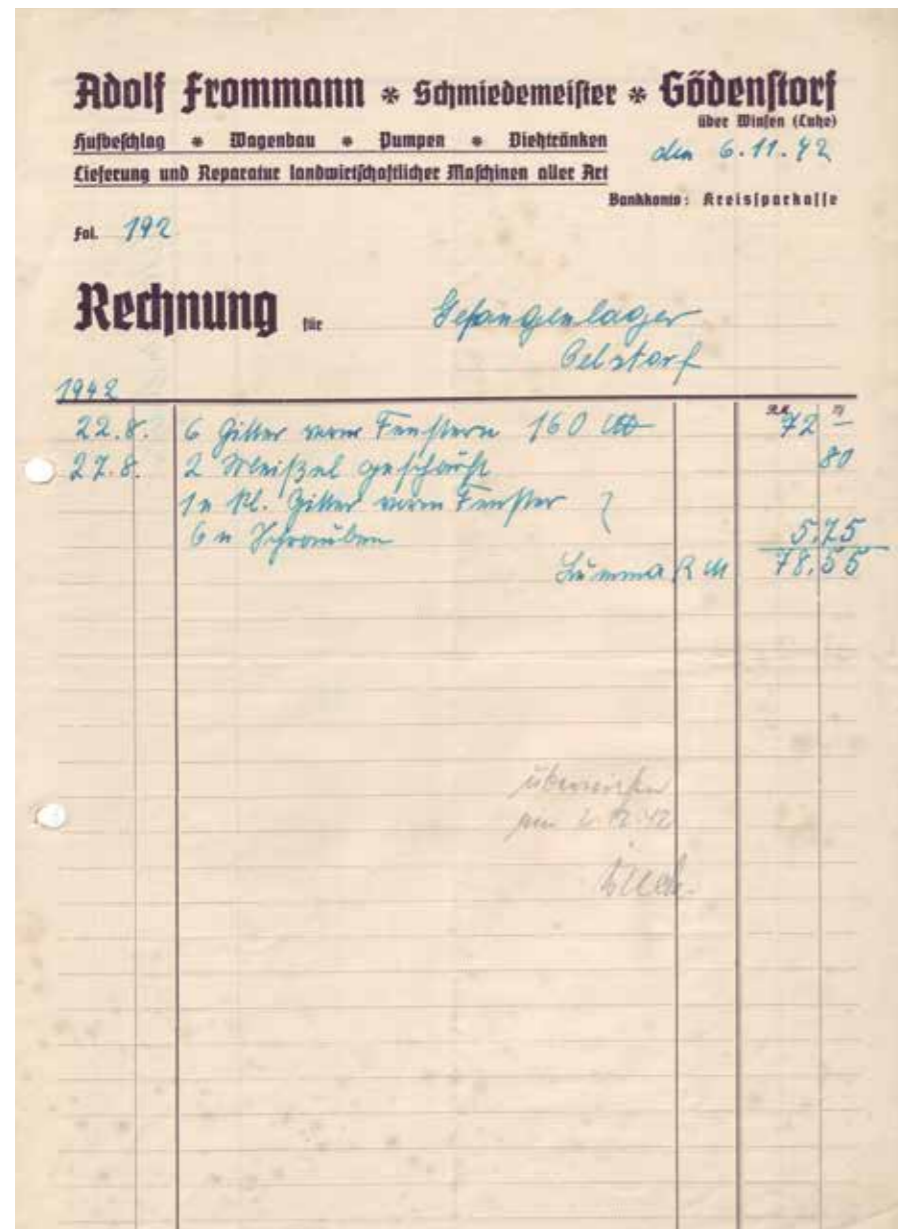 Adolf Frommann * Schmiedemeister * Gödenstorf
über Winsen (Luhe)
Hufbeschlag * Wagenbau * Pumpen * Viehtränken
den 6.11.42
Lieferung und Reparatur landwirtschaftlicher Maschinen aller Art
Bankkonto: Kreissparkasse
Fol. 192
Rechnung für Gefangenlager
Oelstorf
1942
RM
22.8. 6 Gitter vorm Fenstern 160 72 –
27.8. 2 Meißel geschärft 80
1 n kl. Gitter vorm Fenster }
6 n Schrauben 5,75
Summa RM 78,55
überwiesen
am 2.12.42